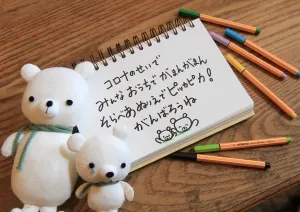 コロナのせいで
みんなおうちでがまんがまん
そらべあぬりえでピッカピカ!
がんばろうね